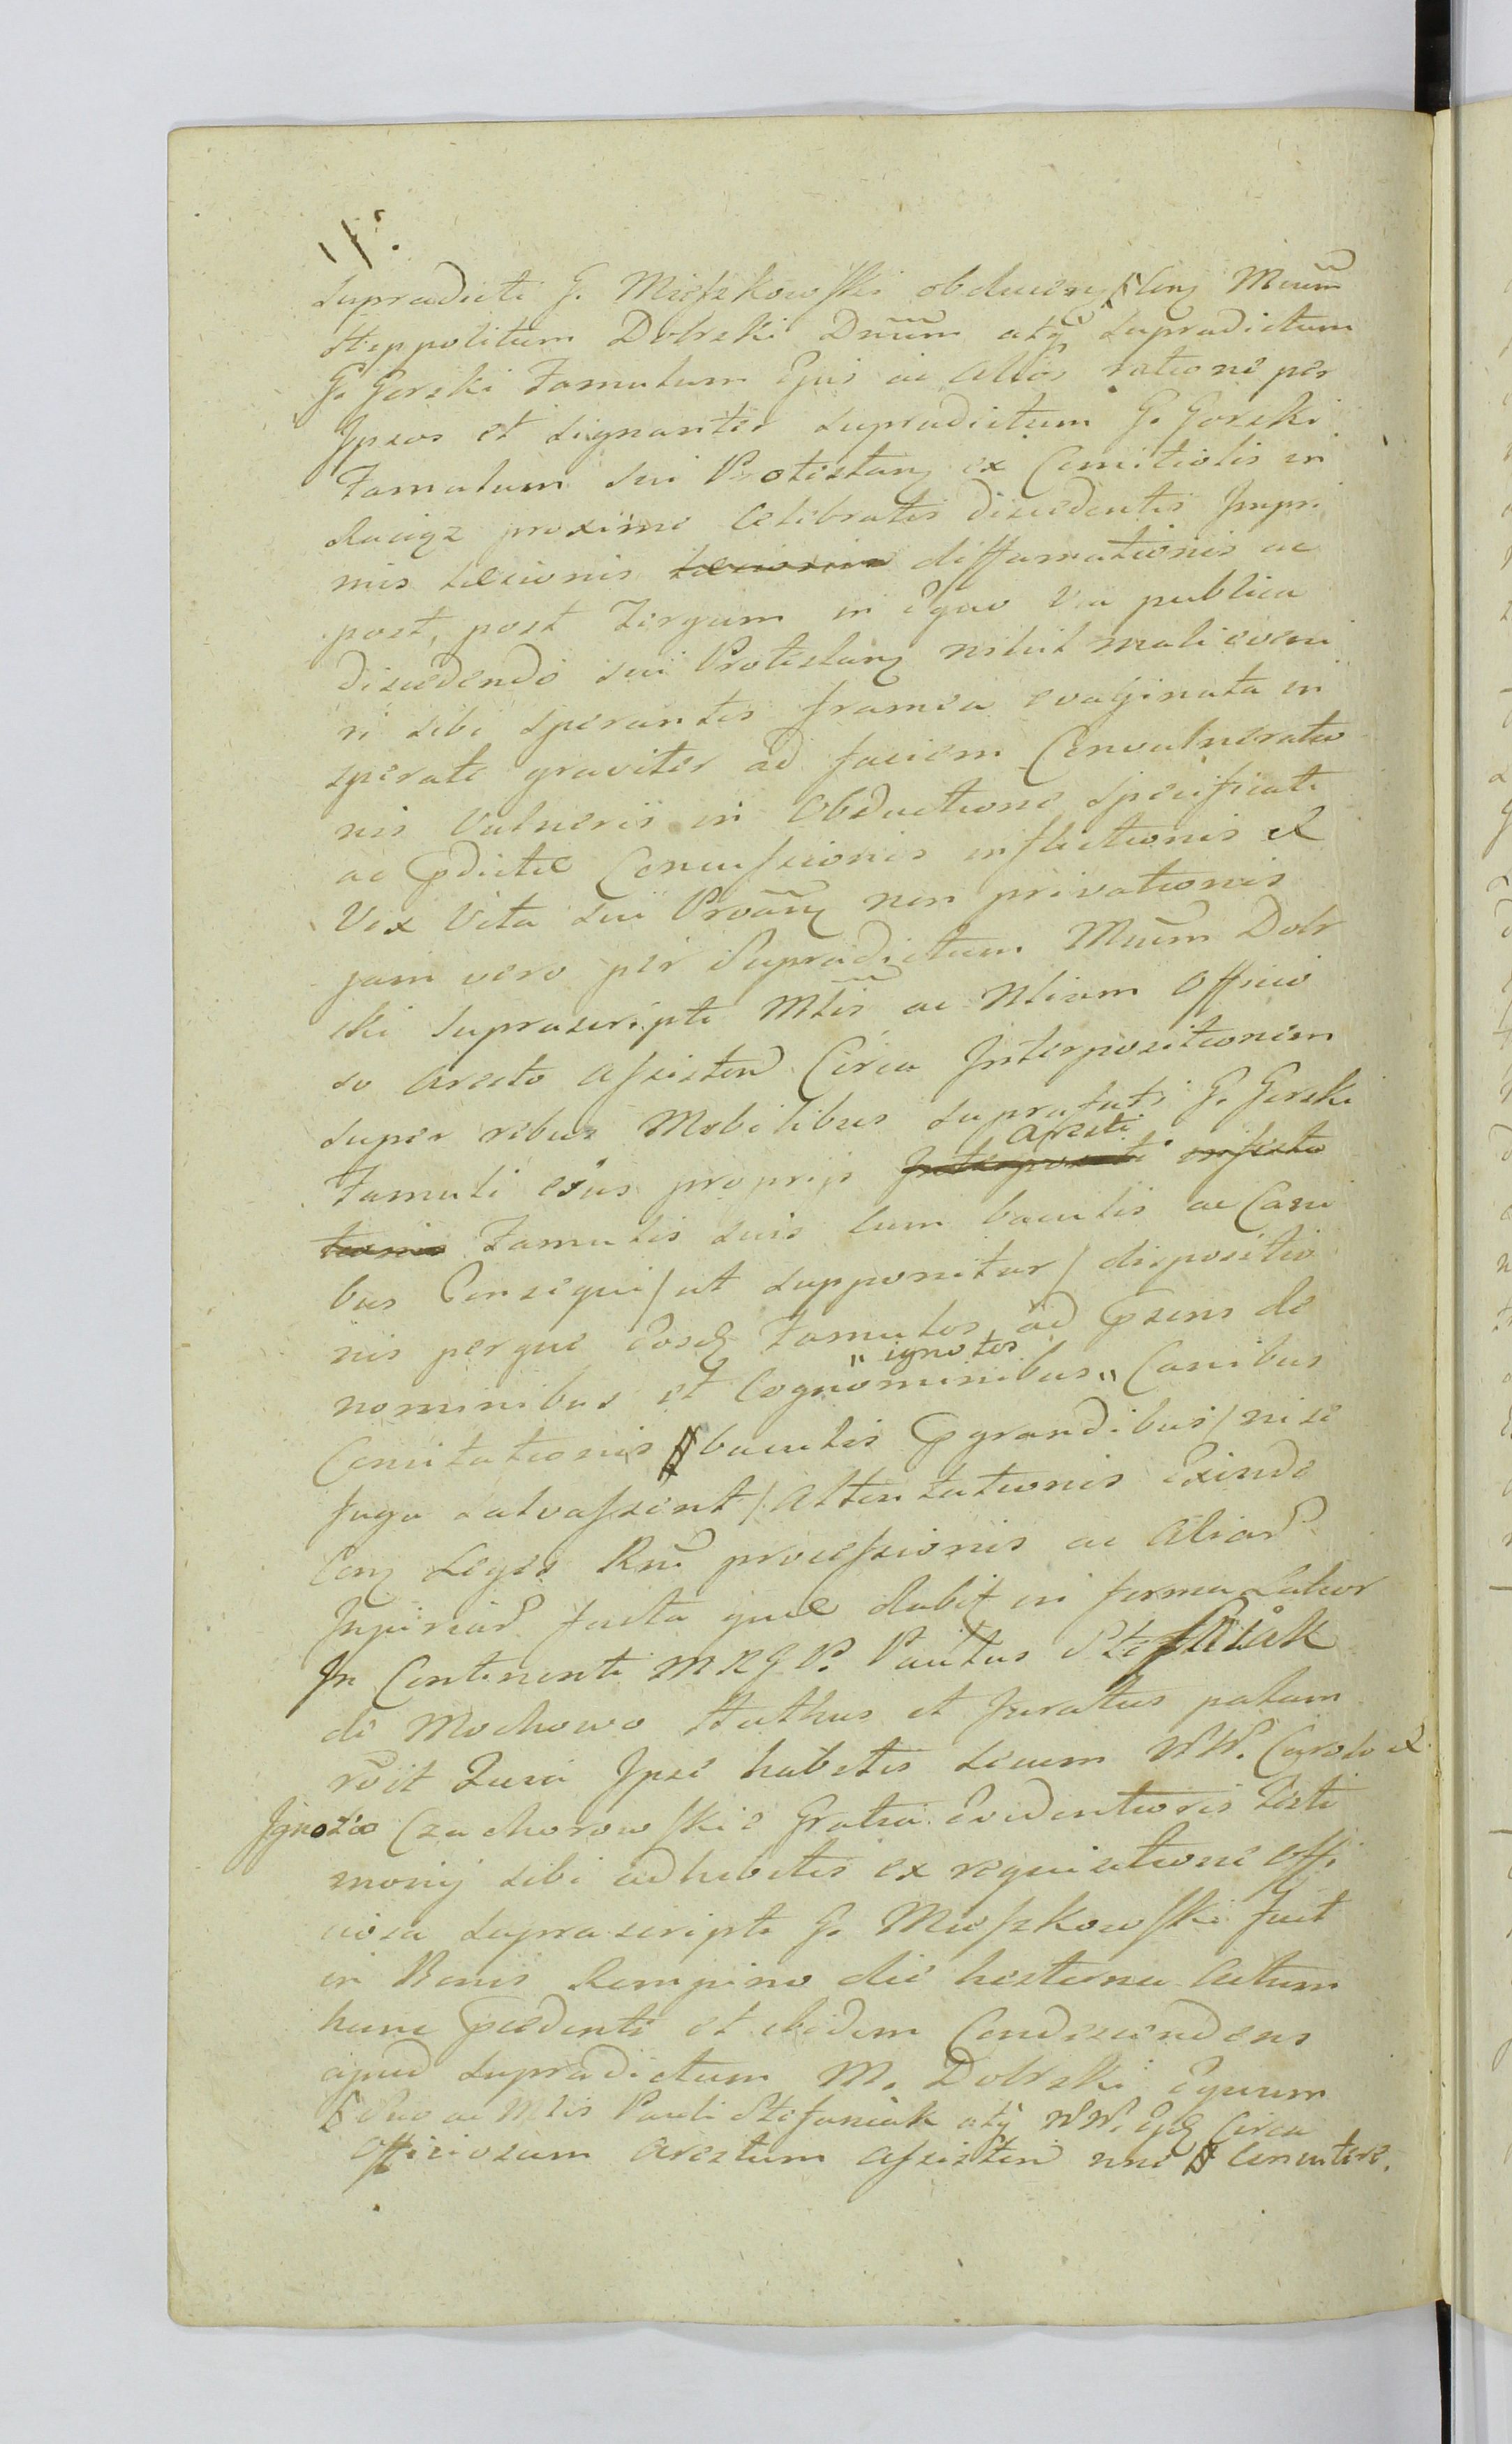 supradicti G. Mieszkowski obducen § Con Mnum
Hyppolitum Dobrski Dnum atq supradictum
G. Gorski Famulum Ejus ac Alios ratione per
Ipsos et signanter supradictum G. Gorski
Famulum sui Protestan ex Comitiolis in
Raciąz proximo Celebratis discedentis Impri
mis Læsionis diffamationis ac
post, post Tergum in Equo via publica
discedendo sui Protestan nihil mali eveni
ri sibi sperantis framea evaginata in
sperate graviter ad faciem Convulneratio
nis Vulneris in Obductione specificati
ac pdictæ Concussionis inflictionis et
Vix Vita sui Proan non privationis
jam vero per Supradictum Mnum Dobr
ski suprascripti Mtis ac Nlium Officio
so Aresto assisten Circa Interpositionem
super rebus Mobilibus suprafati G. Gorski
Famuli ejus proprijs Aresti
Famulis suis Cum baculis ac Cani
bus Consequi / ut supponitur / dispositio
nis perque Eosd Famulos ad psens de
nominibus et Cognominibus „ ignotos „ Canibus
Concitationis baculis pgrandibus / nisi
fuga salvassent / Attentationis Exinde
Con Leges Rni processionis ac aliar
Injuriar facta quæ dabit in forma Latior
In Continenti MRGP. Paulus Stefaniak
de Mochowo Authus et Juratus palam
roit Quia Ipse habitis secum NN. Carolo et
Ignatio Czachorowskie Gratia Evidentioris Testi
monij sibi adhibitis ex requisitione offi
ciosa suprascripti G. Mieszkowski fuit
in Bonis Rempino die hesterna Actum
hunc pcedenti et ibidem Condescendens
apud supradictum M. Dobrski Equum
§ Suo ac Mtis Pauli Stefaniak atq NN. Ejd Circa
Officiosum Arestum assisten nne § Conentore.